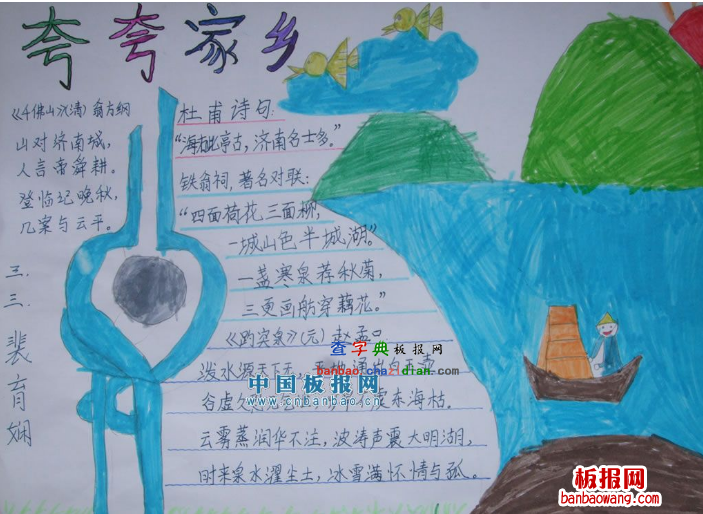 夸夸家乡
《千佛山沉清》翁方纲
山对济南城,
人言帝舜耕。
登临记晚秋,
几案与云平。
三.三 裴育娴
杜甫诗句:
“海右此亭古,济南名士多。”
铁翁祠,著名对联:
“四面荷花三面柳,
一城山色半城湖。”
一盏寒泉荐秋菊,
三更画舫穿藕花。”
《趵突泉》(元) 赵孟
泺水源天下无,
谷虚久 东海枯.
云雾蒸润华不注,波涛声震大明湖,
时来泉水濯尘土,冰雪满怀情与孤。
查字典 板报网
banbao.chazidian.com
中国板报网
www.cnbanbao.cn
板报网
banbaowang.com